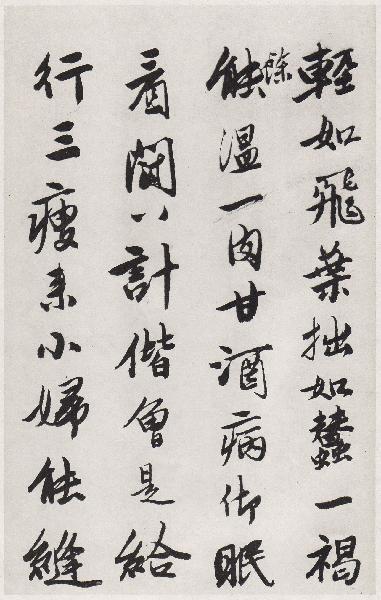 輕如飛葉拙如蠶一褐
能餘溫一肉甘酒病御眠
看八計偕曾是給
行三瘦小婦能縫